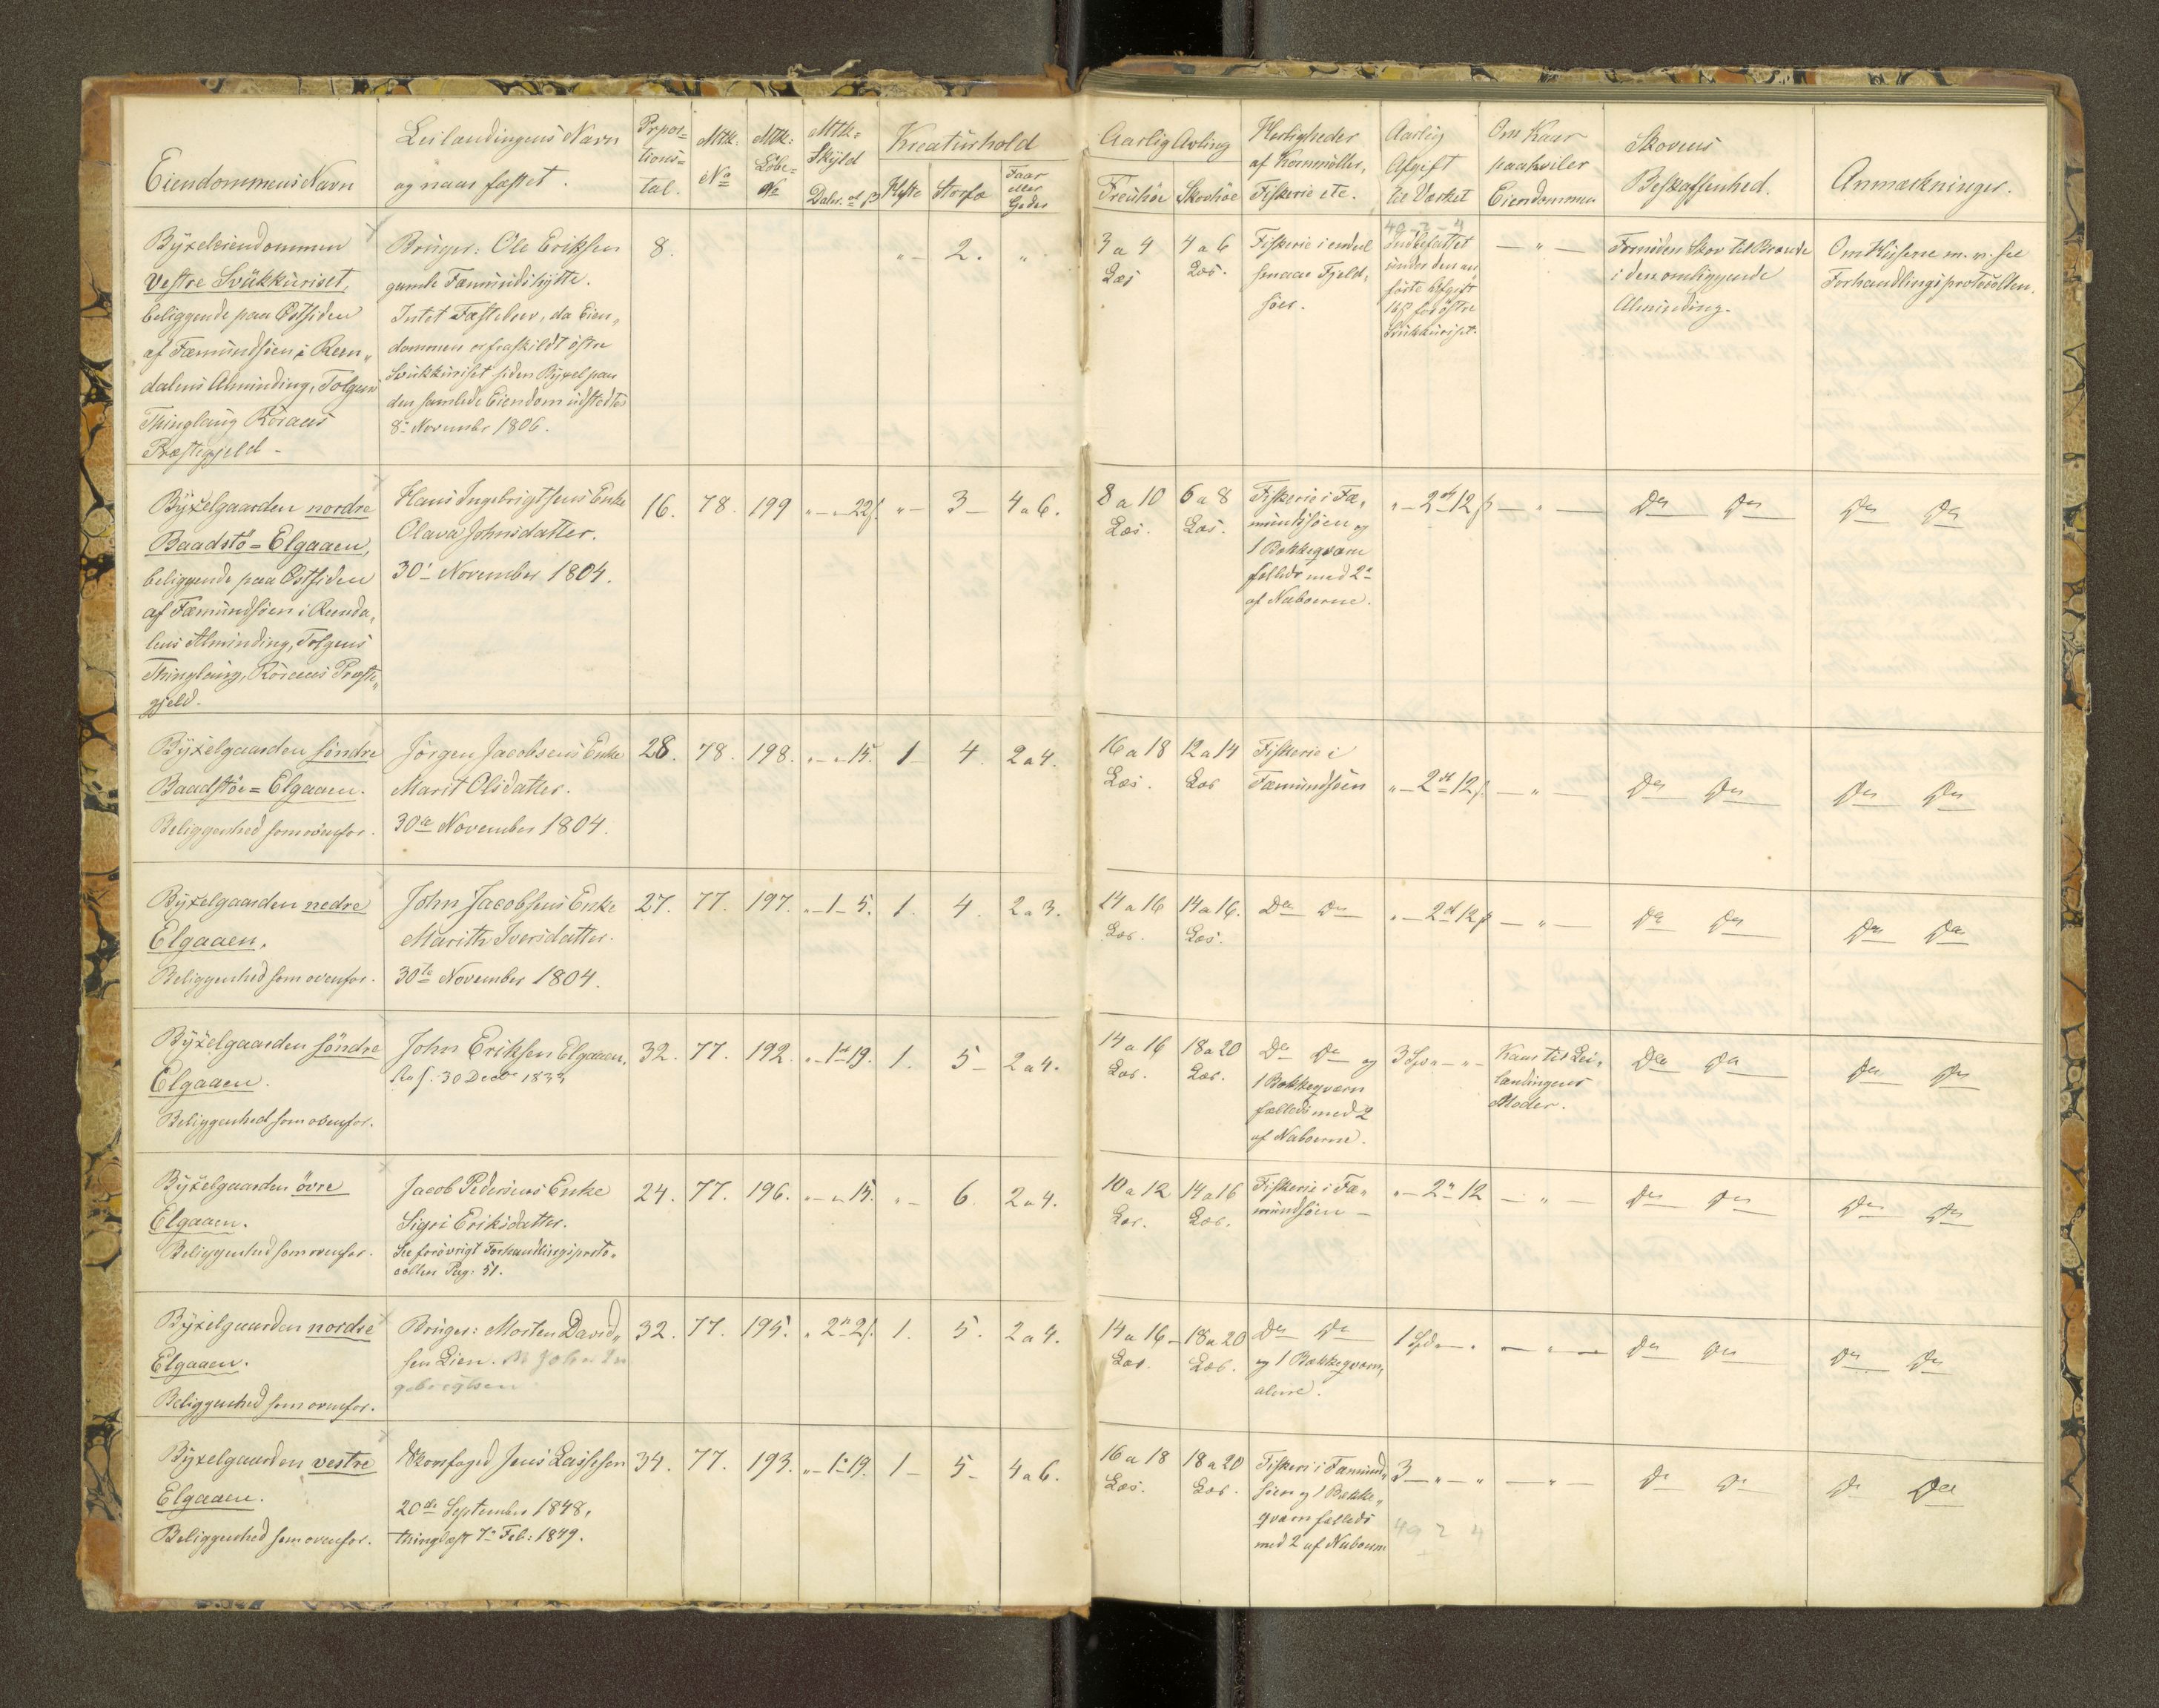 Eiendommens Navn
Leilændingens Navn
og naar fæstet.
Propor=
tions=
tal.
Mtk:
No
Mtk:
Löbe=
No
Mtk=
Skyld
Daler. ort ß
Kreaturhold
Heste
Storfæ
Faar
eller
Geder
Aarlig Avling
Frøehöe
Skovhöe
Herligheder
af Kornmöller,
Fiskerie etc.
Aarlig
Afgift
til Værket
Om Kaar
paahviler
Eiendommen
Skovens
Beskaffenhed.
Anmærkninger.
Byxeleiendommen
Vestre Svükküriset,
beliggende paa Østsiden
af Fæmundsöen i Ren„
dalens Alminding, Tolgens
Thinglaug Röraas
Præstegjeld -
Brüger: Ole Eriksen
gamle Fæmundshytte.
Intet Fæstebrev, da Eien„
dommen er fraskildt östre
Svükküriset siden Byxel paa
den samlede Eiendom udstedtes
8de November 1806.
8.
"
2.
"
3 a 4
Læs
4 a 6
Læs.
Fiskerie i endeel
smaae Fjeld„
söer.
49 - 2 - 4
Indbefattet
ünder den an„
förte Afgift
16ß for östre
Svükküriset.
— " —
Fornöden Skov til Brænde
i den omliggende
Alminding.
Om Hüsene m. v. see
Forhandlingsprotocollen.
Byxelgaarden nordre
Baadstö=Elgaaen,
beliggende paa Østsiden
af Fæmundsöen i Renda„
lens Alminding, Tolgens
Thinglaug, Röraas Præste„
gjeld.
Hans Ingebrigtsens Enke
Olava Johnsdatter.
30' November 1804.
16.
78.
199
" - " 22ß.
" -
3 -
4 a 6.
8 a 10
Læs.
6 a 8
Læs.
Fiskerie i Fæ„
mundsöen og
1 Bekkeqværn
fælleds med 2de
af Naboerne.
" - 2 ort 12 ß
— " —
Do Do
Do Do
Byxelgaarden söndre
Baadstöe=Elgaaen.
Beliggenhed som ovenfor.
Jörgen Jacobsens Enke
Marit Olsdatter.
30te November 1804.
28.
78.
198.
" - " 15.
1 -
4.
2 a 4.
16 a 18
Læs.
12 a 14
Læs
Fiskerie i
Fæmundsöen
" - 2 ort 12 ß.
— " —
Do Do
Do Do
Byxelgaarden nedre
Elgaaen.
Beliggenhed som ovenfor.
John Jacobsens Enke
Marith Iversdatter.
30te November 1804.
27.
77.
197.
" - 1 - 5.
1.
4.
2 a 3.
14 a 16
Læs.
14 a 16.
Læs.
Do Do
" - 2 ort 12 ß
— " —
Do Do
Do Do
Byxelgaarden söndre
Elgaaen.
Beliggenhed som ovenfor.
John Eriksen Elgaaen.
30 Decbr
32.
77.
192.
" - 1 ort 19.
1.
5 -
2 a 4.
14 a 16
Læs.
18 a 20
Læs.
Do Do og
1 Bekkeqværn
fælleds med 2
af Naboerne.
3 Spd " - " -
Kaar til Lei„
lændingens
Moder.
Do Do
Do Do
Byxelgaarden övre
Elgaaen.
Beliggenhed som ovenfor.
Jacob Pedersens Enke
Sigri Eriksdatter.
See forövrigt Forhandlingsproto„
collen Pag: 51.
24.
77.
196.
" - " 15.
" -
6.
2 a 4.
10 a 12
Læs.
14 a 16
Læs.
Fiskerie i Fæ„
mundsöen -
" - 2 " 12
— " —
Do Do
Do Do
Byxelgaarden nordre
Elgaaen.
Beliggenhed som ovenfor.
Brüger: Morten David„
sen Lien. N John In
gebrigtsen
32.
77.
195.
" 2 " 2ß.
1.
5.
2 a 4.
14 a 16 -
Læs.
18 a 20
Læs.
Do Do
og 1 Bækkeqværn,
alene.
1 Spd - "
— " —
Do Do
Do Do
Byxelgaarden vestre
Elgaaen.
Beliggenhed som ovenfor.
Skovfoged Jens Lassesen
20de September 1848,
thinglæst 7de Feb: 1849.
34.
77.
193.
" - 1 " 19.
1 -
5 -
4 a 6.
16 a 18
Læs.
18 a 20
Læs.
Fiskeri i Fæmund„
söen og 1 Bække„
qværn fælleds
med 2 af Naboerne
3 - " - "
49 2 4
— " —
Do Do
Do Do